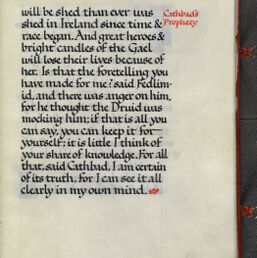 will be shed than ever was
shed in Ireland since time &
race began. And great heroes &
bright candles of the Gael
will lose their lives because of
her. Is that the foretelling you
have made for me? said Fedlim-
id, and there was anger on him,
for he thought the Druid was
mocking him; if that is all you
can say, you can keep it for
yourself; it is little I think of
your share of knowledge. For all
that, said Cathbad, I am certain
of its truth, for I can see it all
clearly in my own mind.
Cathbad's
Prophecy